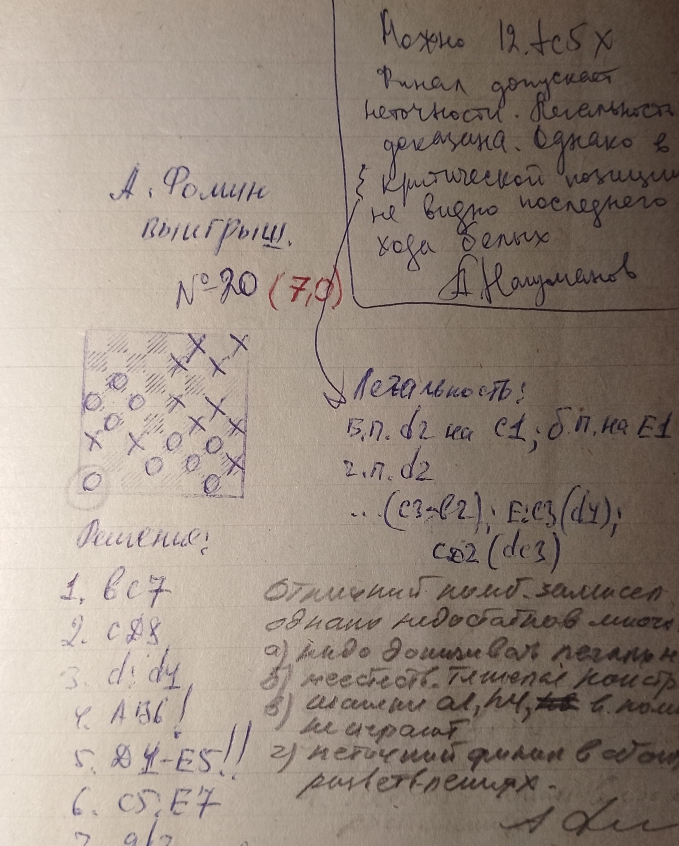 Можно 12. fc5 X
Финал допускает
неточности. Легальность
доказана. Однако в
критической позиции
не видно последнего
хода белых
А. Фомин
выигрыш.
№20 (7,0)
Легальность:
б.п. d2 на c1; б.п. на E1
ч.п. d2
...(c3-b2);
Решение:
1. bc7
2. cD8
3. d:d4
4. AB6!
5. D4-E5!!
6. c5:E7
Отличный комб. замысел
однако недостатков много
а) надо доказывать
б) неестеств. тяжелая
в) шашки a1, h4, в
не играют
г) неточный финал в
разветвлениях.